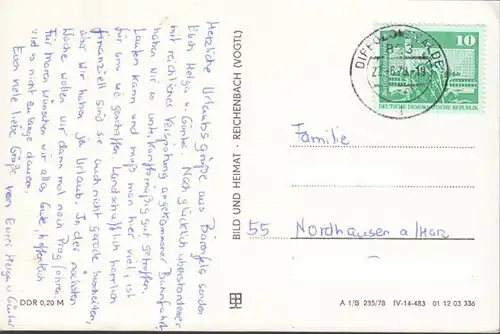 Herzliche Urlaubsgrüße aus Bärenfels senden
Euch Helga u. Günter. Nach glücklich überstandener
mit reichlicher Verspätung angekommener Bahnfahrt
haben wir es unterkunftsmäßig gut getroffen.
Laufen kann und muß man hier viel, ist
für uns wie geschaffen. Landschaftlich herrlich
finanziell sind sie auch nicht gerade bescheiden,
aber wir haben ja Urlaub. In der nächsten
Woche wollen wir dann mal nach Prag fahren.
Für Maren wünschen wir alles Gute, hoffentlich
wird es nicht zu lange dauern.
Euch viele liebe Grüße von Eurer Helga u. Günter
DDR 0,20 M
BILD UND HEIMAT · REICHENBACH (VOGTL)
10
DEUTSCHE DEMOKRATISCHE REPUBLIK
Familie
55 Nordhausen a/Harz
A 1/B 235/78 IV-14-483 01 12 03 336